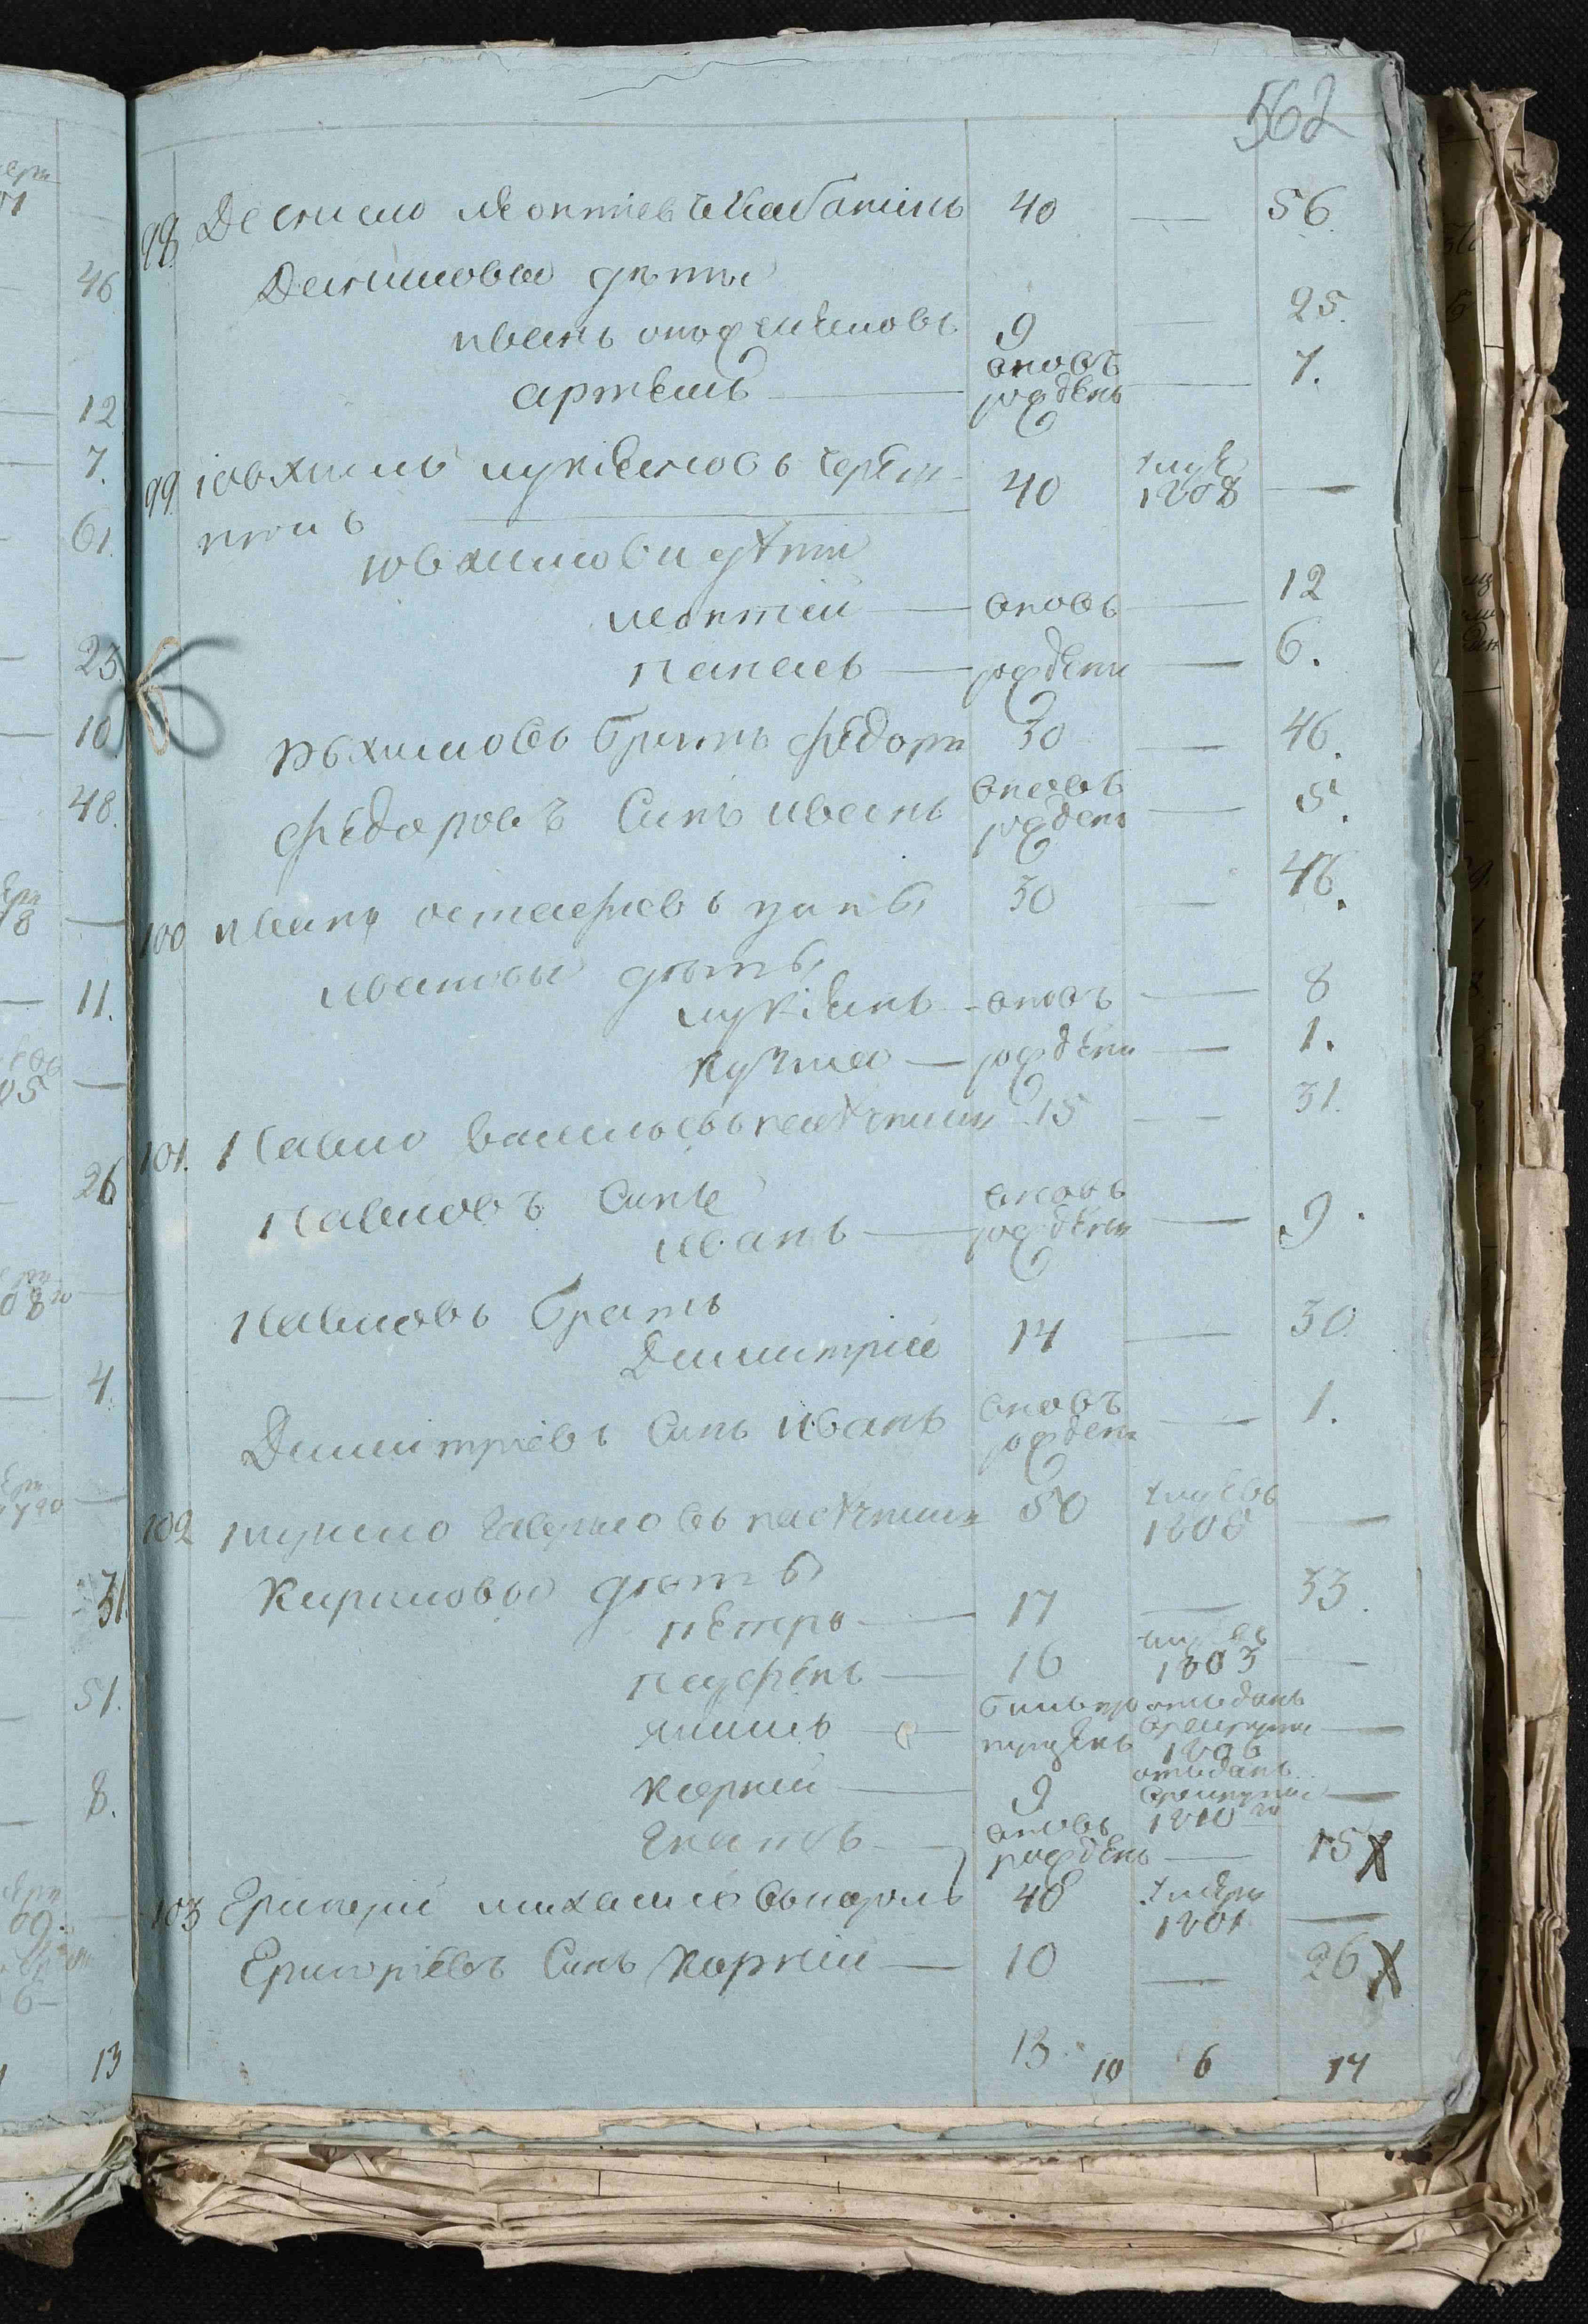 562
98. Данило леонтиевъ Кабанинъ 40 — 56.
Даниловы дѣти
иванъ 9 — 25.
артемъ — вновь рожденъ — 7.
99. ювхимъ лукяновъ 40 умре 1808 —
ювхимови дѣти
леонтій — вновь — 12
панасъ — рождени — 6.
ювхимовъ братъ федоръ 30 — 46.
федоровъ синъ иванъ вновь рожден — 5.
100 иванъ остафиевъ 30 — 46.
ивановы дѣты
лукянъ — вновъ — 8
кузма — рождени — 1.
101. Павло васильевъ пасѣчникъ 15 — 31.
Павловъ синъ
иванъ — вновь рождени — 9.
Павловъ братъ
Димитрій 14 — 30
Димитріевъ синъ иванъ вновъ рожден — 1.
102 кирило гаврило въ пасѣчникъ 50 умре въ 1808 —
Кириловы дѣты
петро — 17 — 33.
парфенъ — 16 умре въ 1803 —
якимъ — билъ пропущенъ отъданъ врекруты 1806 —
корнѣй — 9 отъданъ врекруты 1810 го —
игнатъ — вновь рожденъ — 15 х
103 Григорій михайло въ кароль 48 умре 1801 —
Григоріевъ синъ корнѣй — 10 — 26 х
13 10 6 14